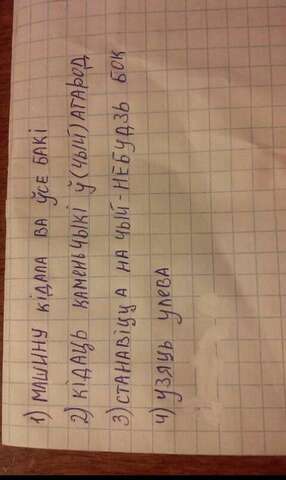 1) МАШИНУ КІДАЛА ВА ЎСЕ БАКІ
2) КІДАЦЬ КАМЕНЬЧЫКІ Ў (ЧЫЙ) АГАРОД
3) СТАНАВІЦЦА НА ЧЫЙ-НЕБУДЗЬ БОК
4) УЗЯЦЬ УЛЕВА